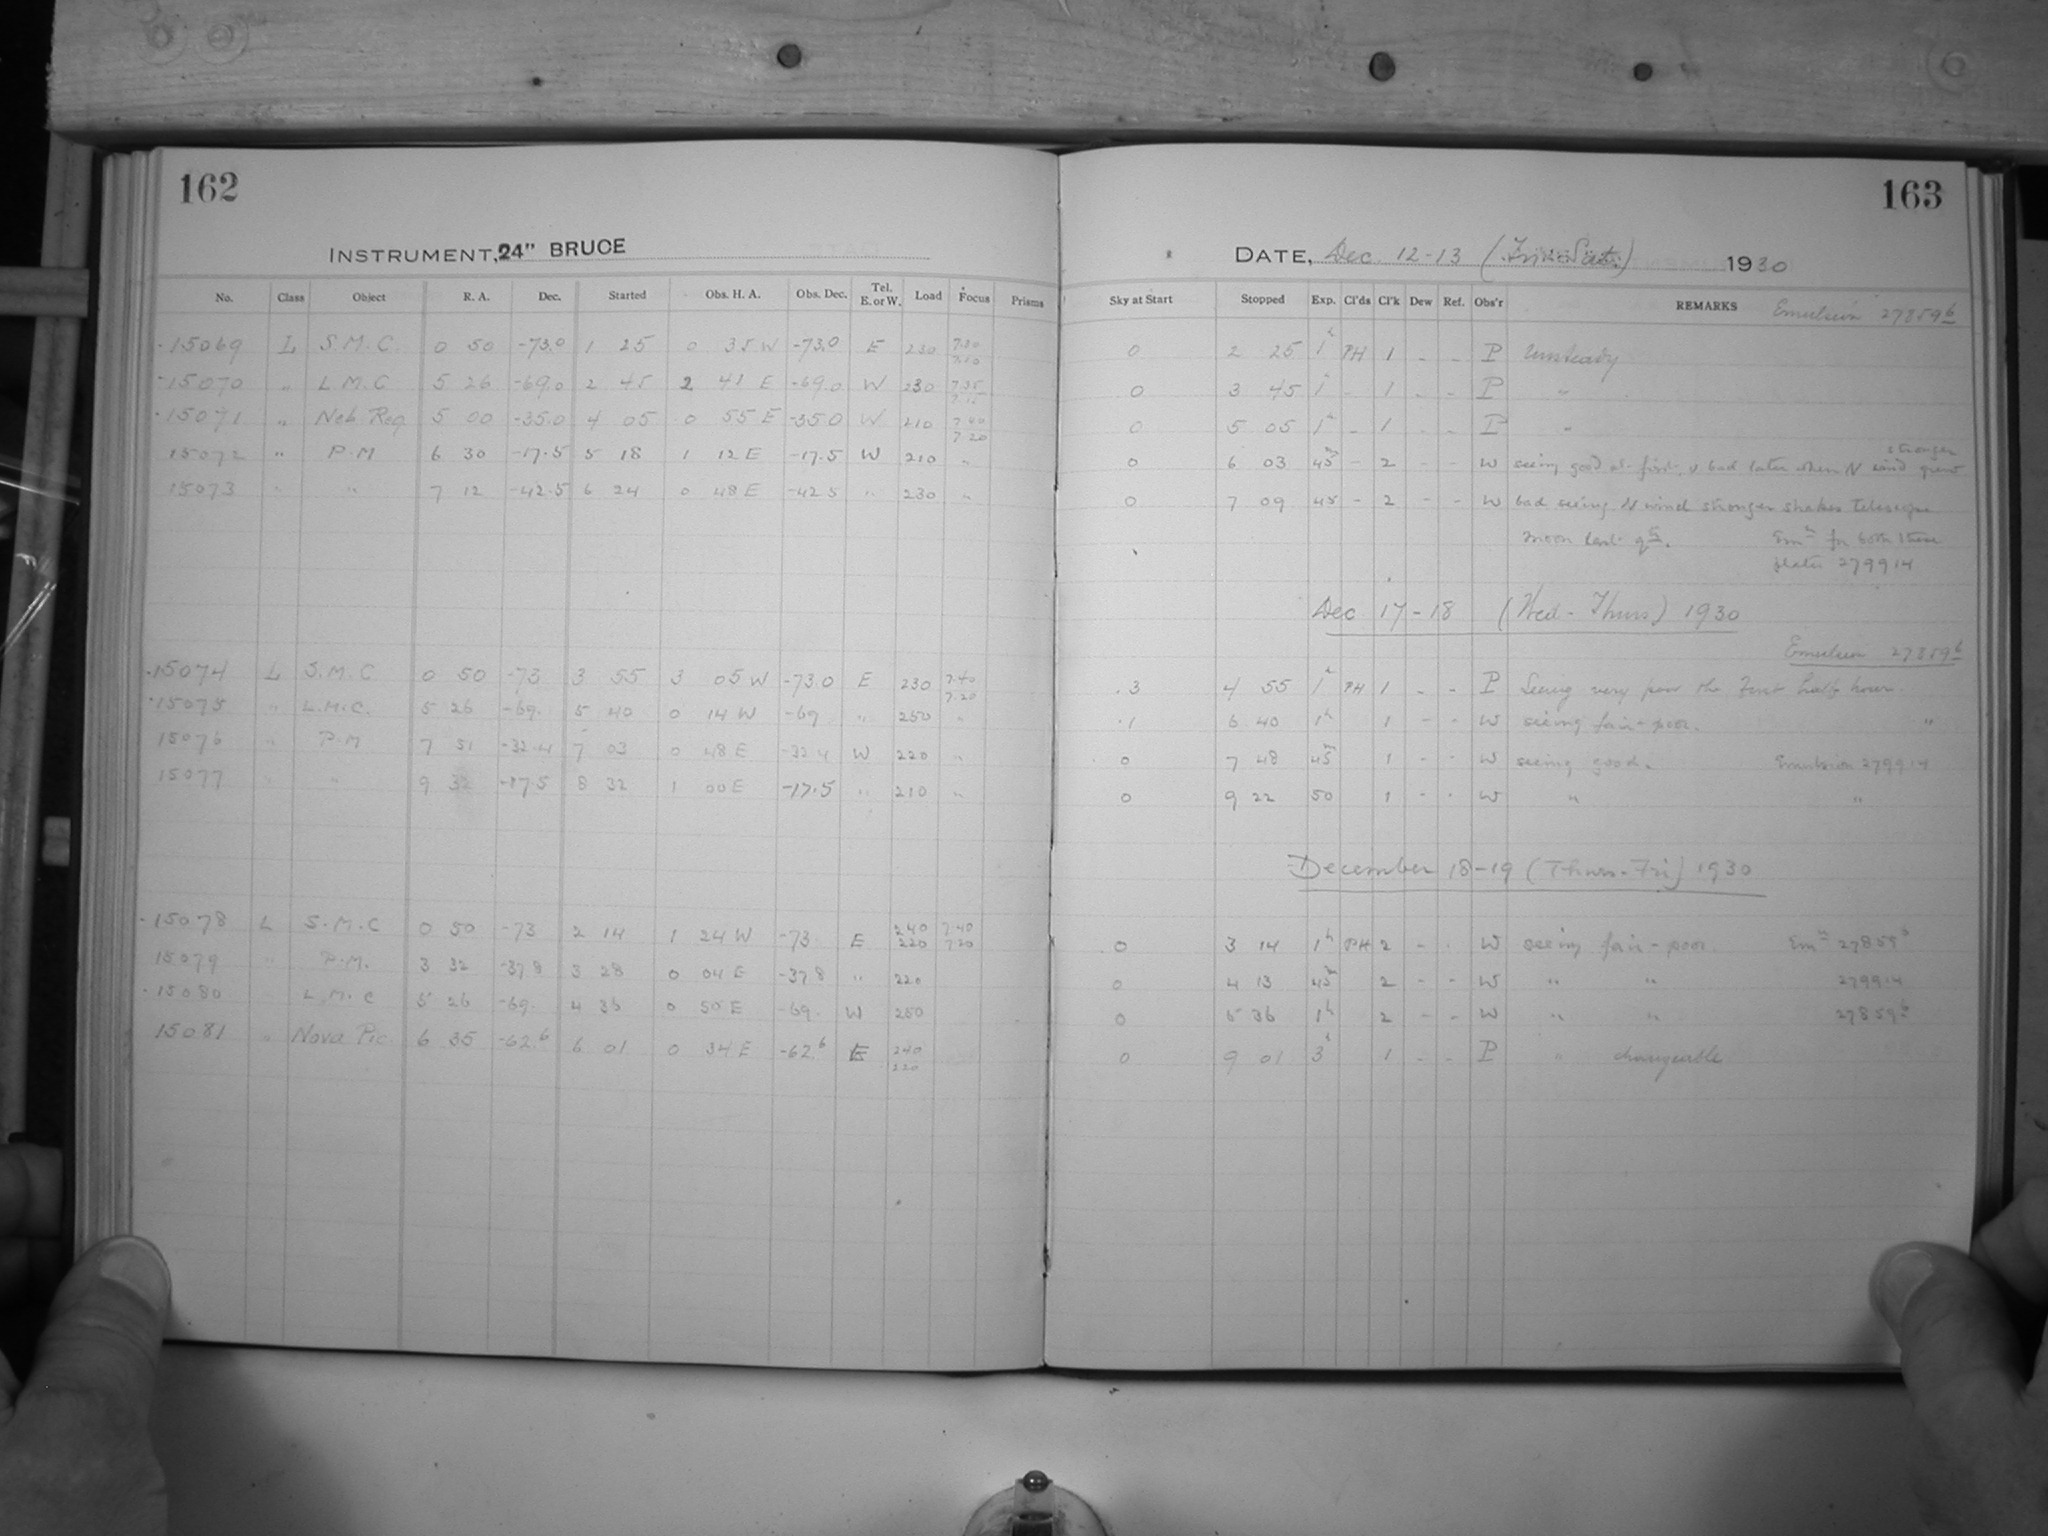 162
INSTRUMENT, 24" BRUCE
No. Class Object R. A. Dec. Started Obs. H. A. Obs. Dec. Tel. E. or W. Load Focus Prisms
15069 L S.M.C. 0 50 -73.0 1 25 0 35 W -73.0 E 230
15070 " L.M.C 5 26 -69.0 2 45 2 41 E -69.0 W 230
15071 " Neb Reg 5 00 -35.0 4 05 0 55 E -35.0 W 210 7.20
15072 " P.M 6 30 -17.5 5 18 1 12 E -17.5 W 210 "
15073 " " 7 12 -42.5 6 24 0 48 E -42.5 " 230 "
15074 L S.M.C 0 50 -73 3 55 3 05 W -73.0 E 230 7.40 7.20
15075 " L.M.C. 5 26 -69. 5 40 0 14 W -69 " 250 "
15076 " P.M 7 51 -32.4 7 03 0 48 E -32.4 W 220 "
15077 " " 9 32 -17.5 8 32 1 00 E -17.5 " 210 "
15078 L S.M.C 0 50 -73 2 14 1 24 W -73. E 240 220 7.40 7.20
15079 " P.M. 3 32 -37.8 3 28 0 04 E -37.8 " 220
15080 L.M.C 5 26 -69. 4 36 0 50 E -69. W 250
15081 " Nova Pic 6 35 -62.6 6 01 0 34 E -62.6 E 240 220
163
DATE, Dec. 12-13 (Fri-Sat.) 1930
Sky at Start Stopped Exp. Cl'ds Cl'k Dew Ref. Obs'r REMARKS Emulsion 27859 6
0 2 25 1h PH 1 - - P Unsteady
0 3 45 1h - 1 - - P "
0 5 05 1h - 1 - - P "
0 6 03 45m - 2 - - W seeing good at first, & bad later when N wind grew stronger
0 7 09 45 - 2 - - W bad seeing N wind stronger shakes telescope
Moon last qr. Emn for both these
plates 279914
Dec 17-18 (Wed-Thurs) 1930
Emulsion 27859 6
3 4 55 1h PH 1 - - P Seeing very poor the first half hour.
1 6 40 1h 1 - - W seeing fair-poor. "
0 7 48 45m 1 - - W seeing good. Emulsion 279914
0 9 22 50 1 - - W " "
December 18-19 (Thurs-Fri) 1930
0 3 14 1h PH 2 - - W seeing fair-poor. Emn 27859 6
0 4 13 45m 2 - - W " " 279914
0 5 36 1h 2 - - W " " 27859 6
0 9 01 3h 1 - - P " changeable